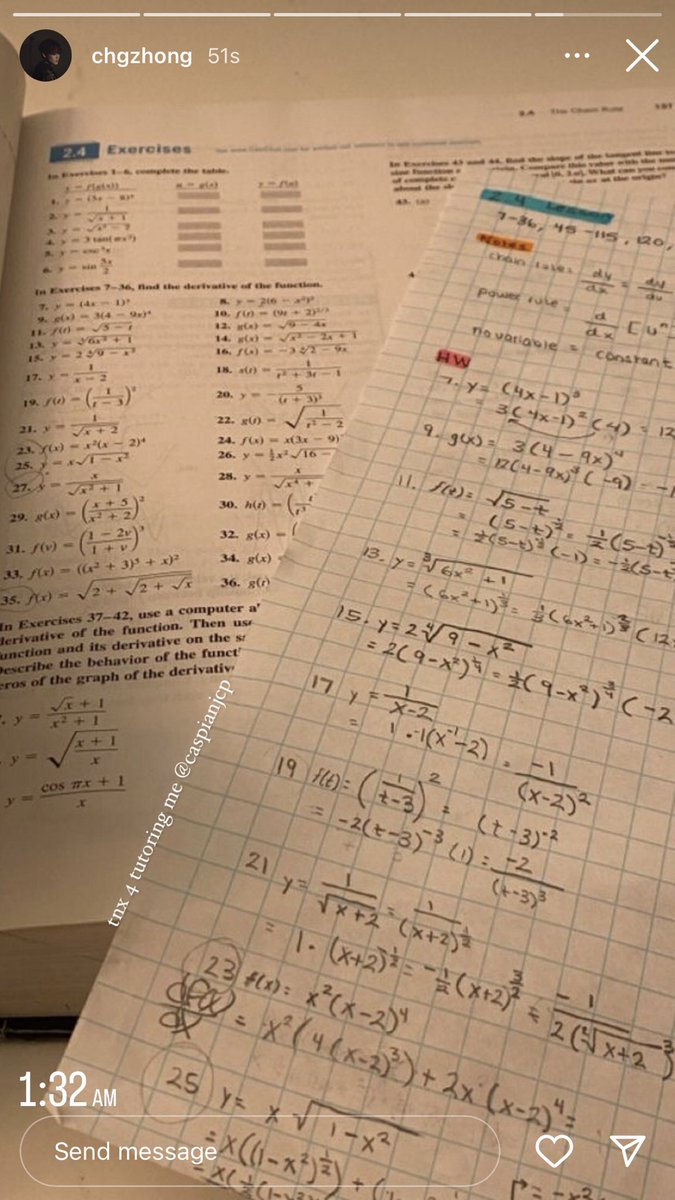 chgzhong 51s
2.4 The Chain Rule 151
2.4 Exercises
In Exercises 1–6, complete the table.
y = f(g(x)) u = g(x) y = f(u)
3. y = √x² − 7
4. y = 3 tan(πx²)
5. y = csc³x
6. y = sin 5x/2
In Exercises 7–36, find the derivative of the function.
7. y = (4x − 1)³ 8. y = 2(6 − x²)⁵
9. g(x) = 3(4 − 9x)⁴ 10. f(t) = (9t + 2)^2/3
11. f(t) = √5 − t 12. g(x) = √9 − 4x
13. y = ∛6x² + 1 14. g(x) = √x² − 2x + 1
15. y = 2 ∜9 − x² 16. f(x) = −3 ∜2 − 9x
17. y = 1/x − 2 18. s(t) = 1/t² + 3t − 1
19. f(t) = (1/t − 3)² 20. y = 5/(t + 3)³
21. y = 1/√x + 2 22. g(t) = √1/t² − 2
23. f(x) = x²(x − 2)⁴ 24. f(x) = x(3x − 9)
25. y = x√1 − x² 26. y = ½x²√16 −
27. y = x/√x² + 1 28. y = x/√x⁴ +
29. g(x) = (x + 5/x² + 2)² 30. h(t) = (t
31. f(v) = (1 − 2v/1 + v)³ 32. g(x) = (
33. f(x) = ((x² + 3)⁵ + x)² 34. g(x)
35. f(x) = √2 + √2 + √x 36. g(t)
In Exercises 37–42, use a computer a
derivative of the function. Then use
function and its derivative on the s
Describe the behavior of the funct
eros of the graph of the derivativ
. y = √x + 1/x² + 1
y = √x + 1/x
y = cos πx + 1/x
2.4 Lesson
7-36, 45-115, 120,
Notes
chain rule = dy/dx = dy/du
power rule = d/dx [uⁿ
no variable = constant
HW
7. y = (4x-1)³
= 3(4x-1)² (4) = 12
9. g(x) = 3(4-9x)⁴
= 12(4-9x)³ (-9) = -1
11. f(t) = √5-t
= (5-t)^½ = ½(5-t)^-½
= ½(5-t)^½ (-1) = -½(5-t
13. y = ∛6x² + 1
= (6x²+1)^⅓ = ⅓(6x²+1)^⅔ (12
15. y = 2∜9-x²
= 2(9-x²)^¼ = ½(9-x²)^¾ (-2
17 y = 1/x-2
= 1 · -1(x⁻¹-2) = -1/(x-2)²
19 f(t) = (1/t-3)² = (t-3)⁻²
= -2(t-3)⁻³ (1) = -2/(t-3)³
21 y = 1/√x+2 = 1/(x+2)^½
= 1 · (x+2)^-½ = -½(x+2)^3/2 = -1/2(√x+2³)
23 f(x) = x²(x-2)⁴
= x²(4(x-2)³) + 2x · (x-2)⁴ =
25 y = x√1-x²
= x((1-x²)^½) + (
= x(½(1-x²
tnx 4 tutoring me @caspianjcp
1:32 AM
Send message